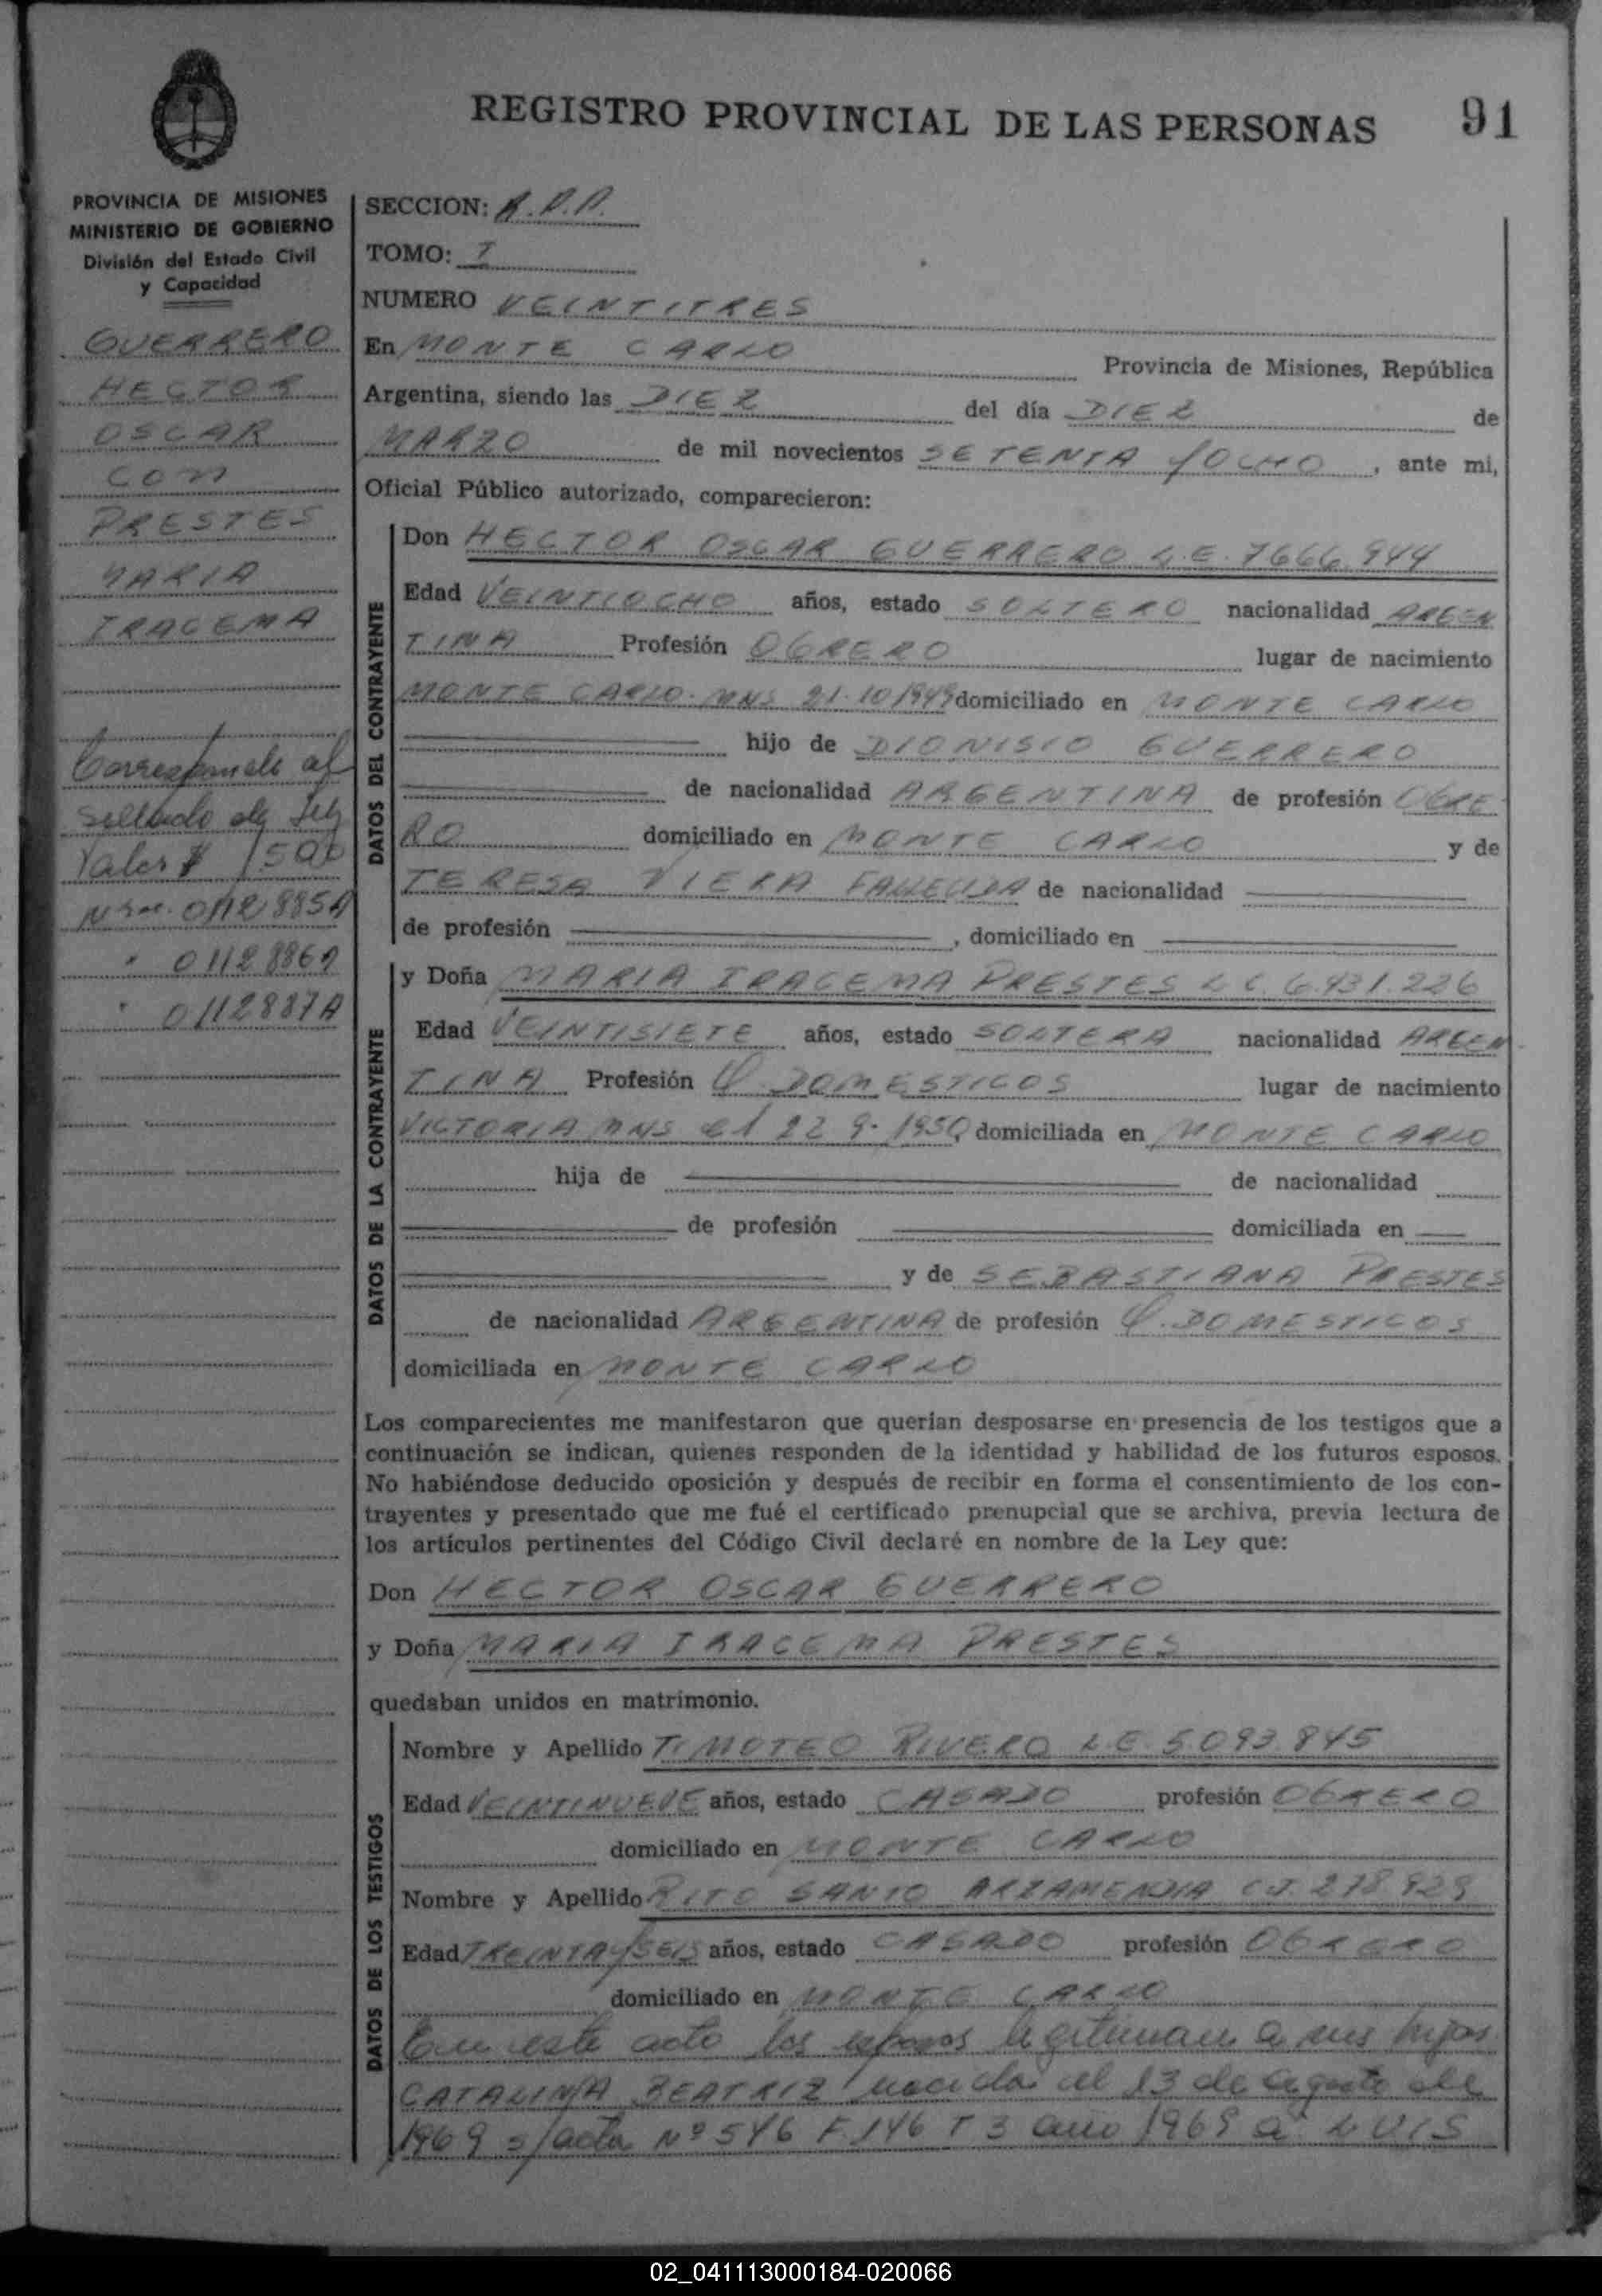 REGISTRO PROVINCIAL DE LAS PERSONAS 91
PROVINCIA DE MISIONES
MINISTERIO DE GOBIERNO
División del Estado Civil
y Capacidad
GUERRERO
HECTOR
OSCAR
CON
PRESTES
MARIA
IRACEMA
Corresponde al
sellado de Ley
Valor $ 1500
Nros. 0112885A
" 0112886A
" 0112887A
SECCION: A.P.P.
TOMO: I
NUMERO VEINTITRES
En MONTE CARLO Provincia de Misiones, República
Argentina, siendo las DIEZ del día DIEZ de
MARZO de mil novecientos SETENTA Y OCHO, ante mi,
Oficial Público autorizado, comparecieron:
DATOS DEL CONTRAYENTE
Don HECTOR OSCAR GUERRERO L.E. 7.666.944
Edad VEINTIOCHO años, estado SOLTERO nacionalidad ARGEN
TINA Profesión OBRERO lugar de nacimiento
MONTE CARLO. MNS 21-10-1949 domiciliado en MONTE CARLO
hijo de DIONISIO GUERRERO
de nacionalidad ARGENTINA de profesión OBRE
RO domiciliado en MONTE CARLO y de
TERESA VIERA FALLECIDA de nacionalidad
de profesión , domiciliado en
DATOS DE LA CONTRAYENTE
y Doña MARIA IRACEMA PRESTES L.C. 6.431.226
Edad VEINTISIETE años, estado SOLTERA nacionalidad ARGEN
TINA Profesión Q. DOMESTICOS lugar de nacimiento
VICTORIA MNS el 22-9-1950, domiciliada en MONTE CARLO
hija de de nacionalidad
de profesión domiciliada en
y de SEBASTIANA PRESTES
de nacionalidad ARGENTINA de profesión Q. DOMESTICOS
domiciliada en MONTE CARLO
Los comparecientes me manifestaron que querían desposarse en presencia de los testigos que a
continuación se indican, quienes responden de la identidad y habilidad de los futuros esposos.
No habiéndose deducido oposición y después de recibir en forma el consentimiento de los con-
trayentes y presentado que me fué el certificado prenupcial que se archiva, previa lectura de
los artículos pertinentes del Código Civil declaré en nombre de la Ley que:
Don HECTOR OSCAR GUERRERO
y Doña MARIA IRACEMA PRESTES
quedaban unidos en matrimonio.
DATOS DE LOS TESTIGOS
Nombre y Apellido TIMOTEO RIVERO L.E. 5.093.845
Edad VEINTINUEVE años, estado CASADO profesión OBRERO
domiciliado en MONTE CARLO
Nombre y Apellido RITO SANTO ARZAMENDIA C.I. 278.929
Edad TREINTA Y SEIS años, estado CASADO profesión OBRERO
domiciliado en MONTE CARLO
En este acto los esposos legitiman a sus hijos
CATALINA BEATRIZ nacida el 13 de agosto de
1969 s/acta Nº 546 F 146 T 3 año 1969 a LUIS
02_041113000184-020066